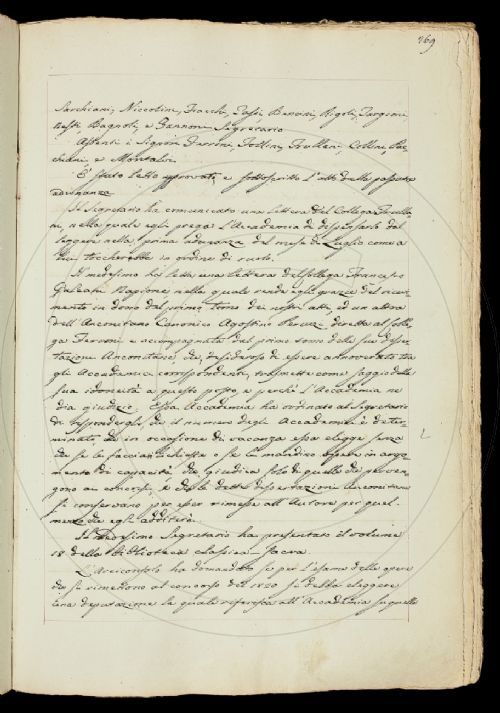 369
Sarchiani, Niccolini, Fiacchi, Zassi, Bencini, Rigoli, Targioni
Nesti, Bagnoli, e Zannoni Segretario
Assenti i Signori Ferroni, Follini, Frullani, Collini, Pac-
chiani, e Montalvi
È stato letto, approvato, e sottoscritto l'atto della passata
adunanza
Il Segretario ha comunicato una lettera del Collega Frulla-
ni, nella quale egli prega l'Accademia di dispensarlo dal
leggere nella prima adunanza del mese di Luglio come a
lui toccherebbe in ordine di ruolo.
Il medesimo ha letta una lettera del Collega Francesco
Galeani Napione nella quale rende egli grazie del ricevi-
mento in dono del primo tomo dei nostri atti, ed un altra
dell'Anconitano Canonico Agostino Peruzzi diretta al Colle-
ga Ferroni e accompagnata dal primo tomo delle sue disser-
tazioni Anconitane che, desideroso di essere annoverato tra
gli Accademici corrispondenti, trasmette come saggio della
sua idoneità a questo posto, e perchè l'Accademia ne
dia giudizio. Essa Accademia ha ordinato al Segretario
di rispondergli, che il numero degli Accademici è deter-
minato, che in occasione di vacanza essa elegge senza
che se le faccia richiesta o se le mandino opere in argo-
mento di capacità, che giudica solo di quelle che perven-
gono al concorso, e che le dette dissertazioni Anconitane
si conservano per esser rimesse all'Autore per quel
mezzo che egli additerà.
Il medesimo Segretario ha presentato il volume
18 della Biblioteca classica sacra.
L'Arciconsolo ha domandato se per l'esame delle opere
che si rimettono al concorso del 1820 si debba eleggere
una deputazione la quale riferisca all'Accademia su quelle